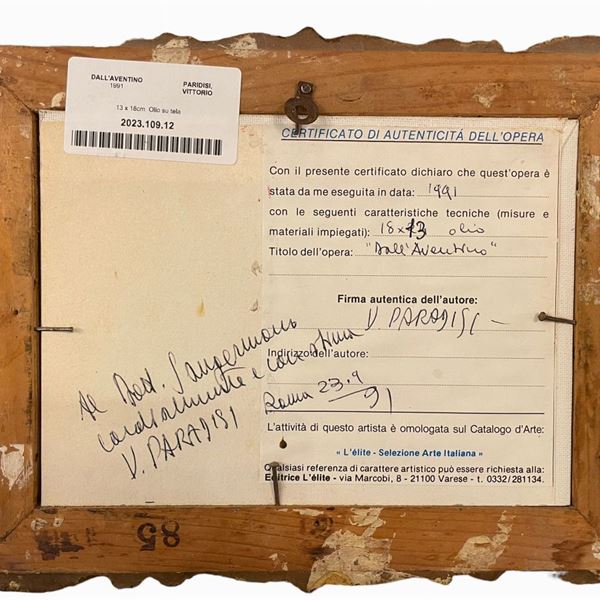 DALL'AVENTINO
1991
PARIDISI,
VITTORIO
13 x 18cm Olio su tela
2023.109.12
CERTIFICATO DI AUTENTICITÀ DELL'OPERA
Con il presente certificato dichiaro che quest'opera è
stata da me eseguita in data: 1991
con le seguenti caratteristiche tecniche (misure e
materiali impiegati): 18x13 olio
Titolo dell'opera: "Dall'Aventino"
Firma autentica dell'autore:
V PARADISI
Indirizzo dell'autore:
Roma 23.9
91
L'attività di questo artista è omologata sul Catalogo d'Arte:
« L'élite - Selezione Arte Italiana »
Qualsiasi referenza di carattere artistico può essere richiesta alla:
Editrice L'élite - via Marcobi, 8 - 21100 Varese - t. 0332/281134.
Al Dott. Sangermano
cordialmente e con stima
V. PARADISI
85